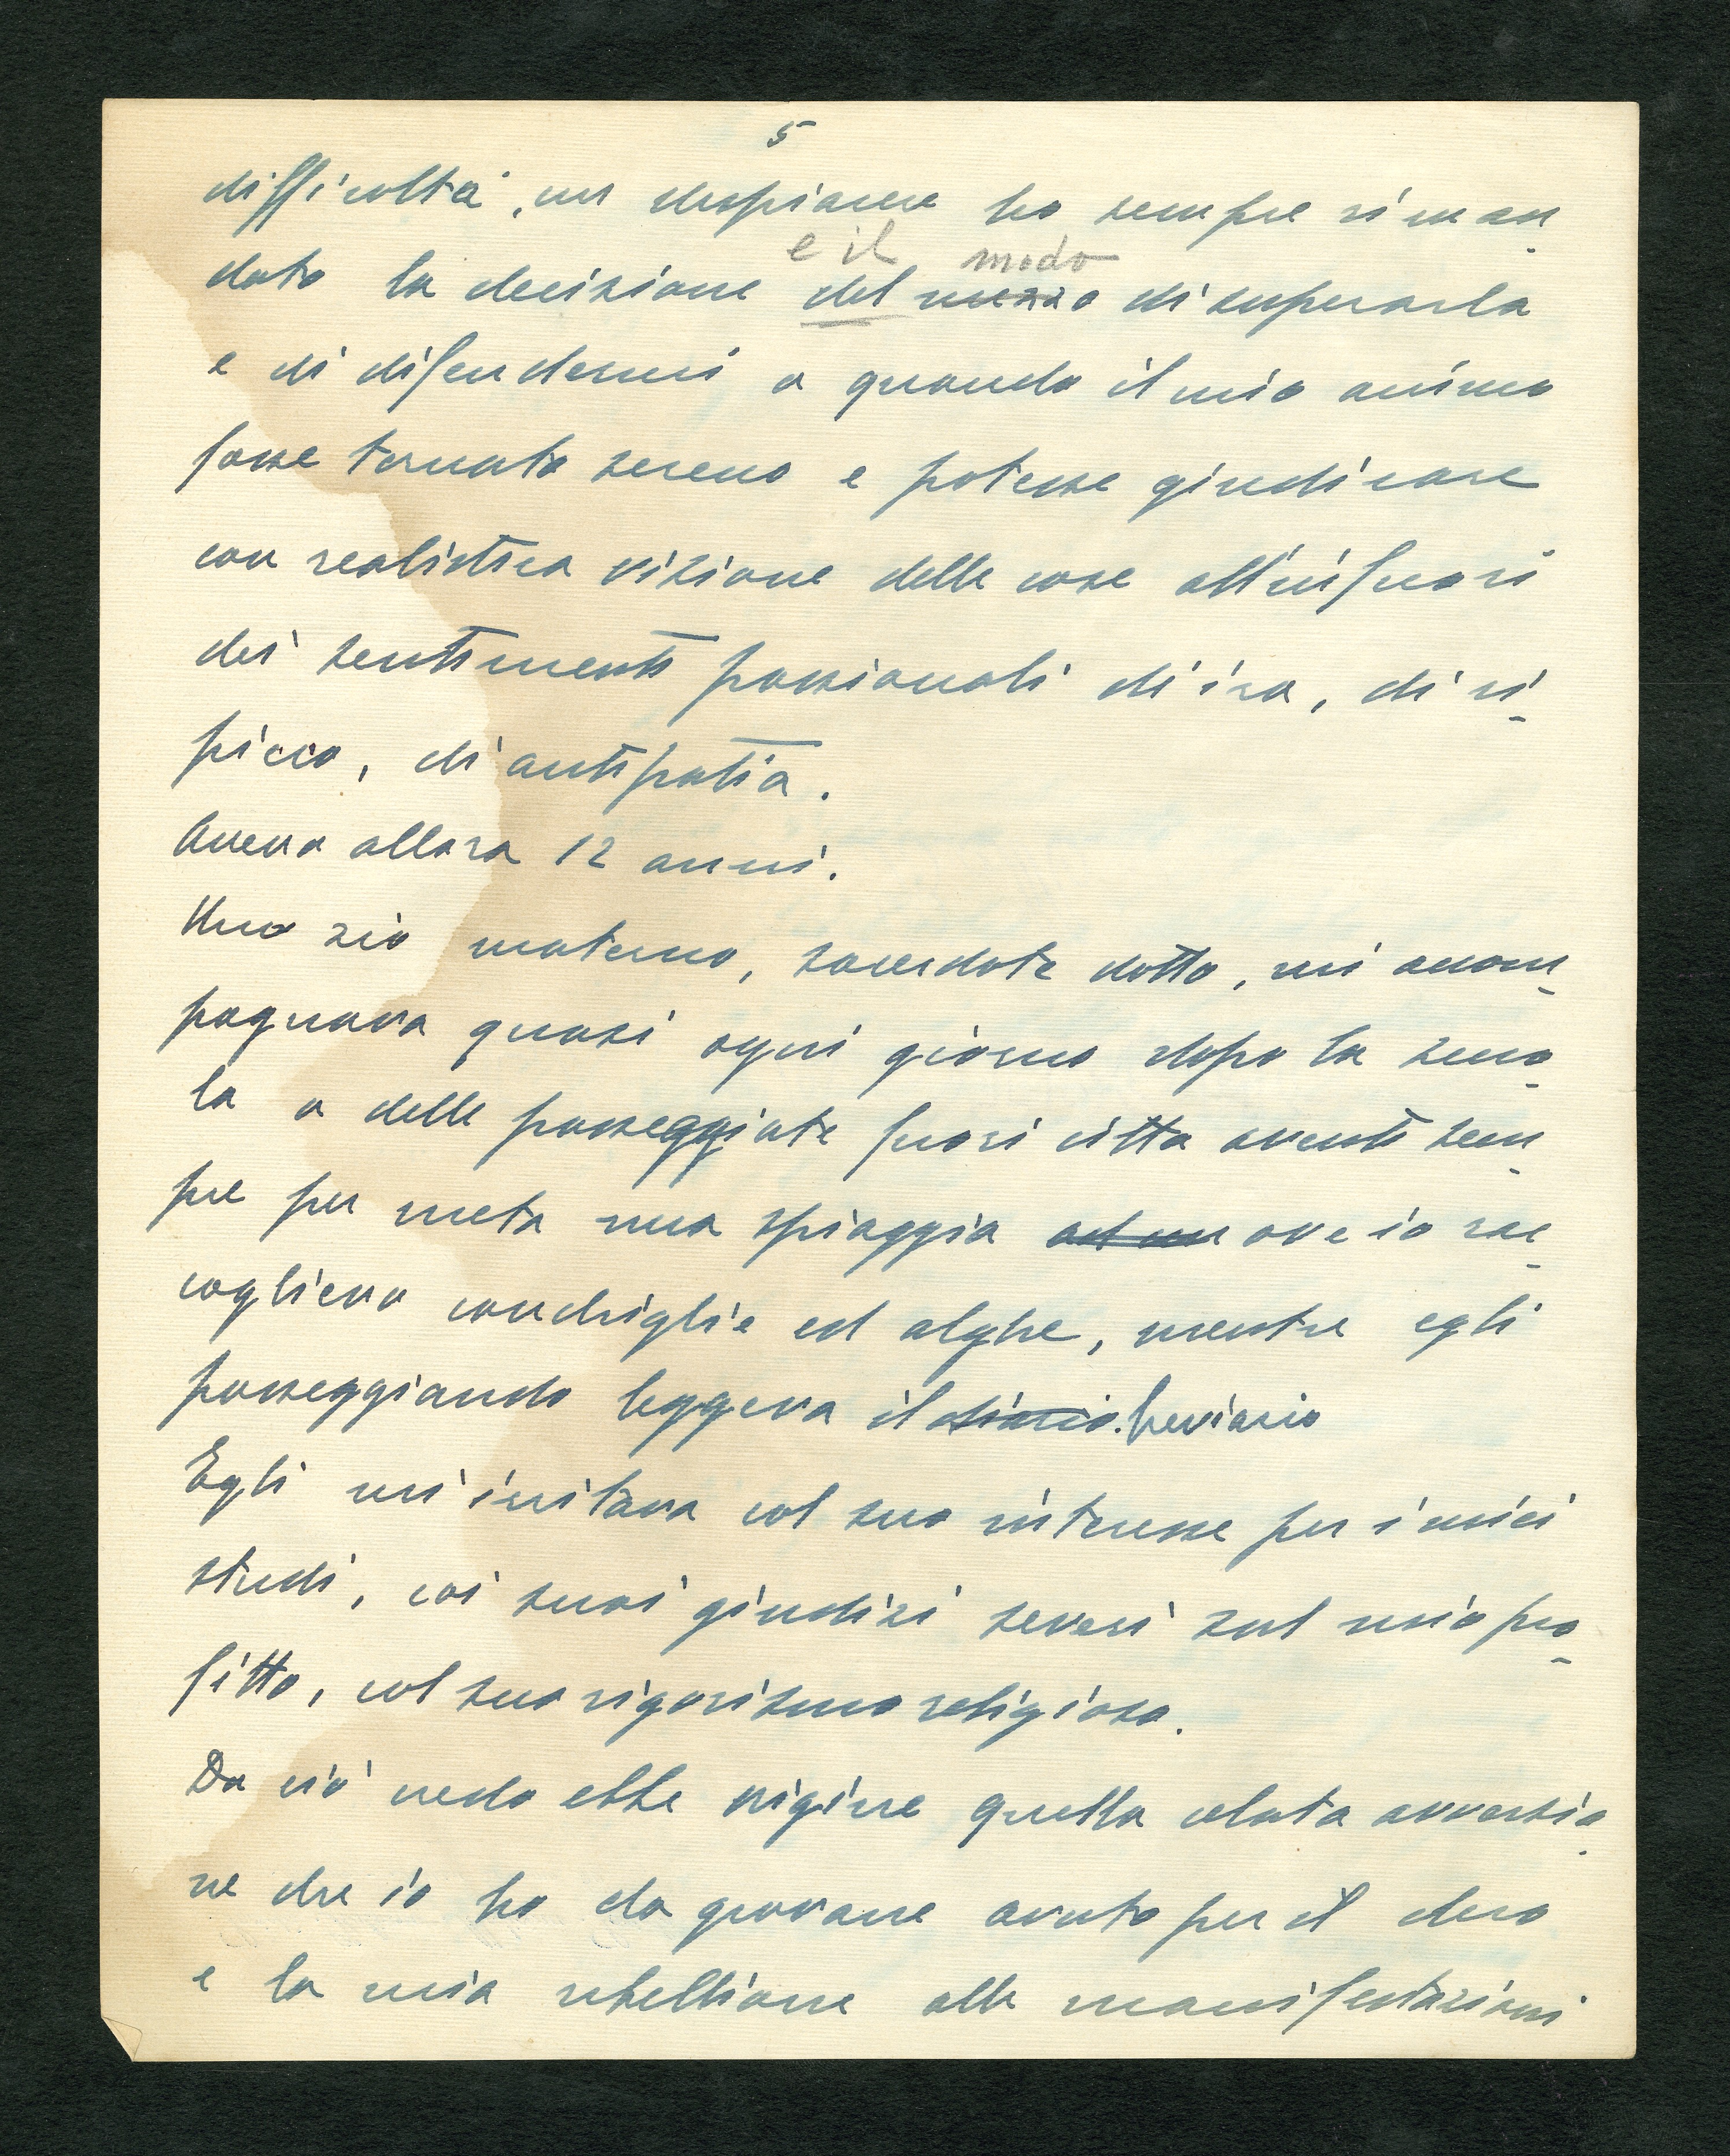 5
difficoltà, un dispiacere ho sempre riman-
e il modo
dato la decisione del mezzo di superarla
e di difendermi a quando il mio animo
fosse tornato sereno e potesse giudicare
con realistica visione delle cose all'infuori
dei sentimenti passionali di ira, di ri-
picco, di antipatia.
Avevo allora 12 anni.
Uno zio materno, sacerdote dotto, mi accom-
pagnava quasi ogni giorno dopo la scuo-
la a delle passeggiate fuori citta aventi sem-
pre per meta una spiaggia ad un ove io rac-
coglievo conchiglie ed alghe, mentre egli
passeggiando leggeva il diario. breviario
Egli mi irritava col suo interesse per i miei
studi, coi suoi giudizi severi sul mio pro-
fitto, col suo rigorismo religioso.
Da ciò credo ebbe origine quella celata avversio-
ne che io ho da giovane avuto per il clero
e la mia rebellione alle manifestazioni